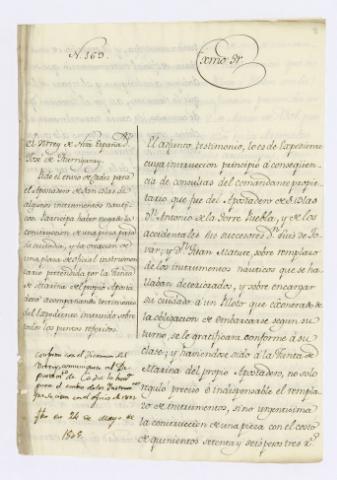 N. 163.
Exmo. Sr.
El Virrey de Nva. España Dn.
Jose de Yturrigaray.
Pide el envio de Cadiz para el
Apostadero de San Blas de
algunos instrumentos nauti-
cos. Participa haber
construccion de una pieza para
su custodia, y la creacion de
una plaza de oficial instrumen-
tario pretendida por la Junta
de Marina del propio Aposta-
dero acompañando testimonio
del Expediente instruido sobre
todos los puntos referidos.
en 24 de Mayo de
1805
El adjunto testimonio, lo es de Expediente
cuya instruccion principió á consequen-
cia de consultas del comandante propie-
tario que fue del Apostadero de Sn. Blas
Dn. Antonio de la Torre Puebla, y de los
accidentales sus succesores Dn. Luis de To-
var, y Dn. Juan Matute, sobre remplazo
de los instrumentos nauticos que se ha-
llaban deteriorados, y sobre encargar
su cuidado á un Piloto que exonerado de
la obligacion de embarcarse segun su
turno, se le gratificara conforme á su
clase; y haviendose oido á la Junta de
Marina del propio Apostadero, no solo
reguló preciso é indispensable el rempla-
zo de instrumentos, sino urgentisima
la construccion de una pieza con el costo
de quinientos setenta y seis pesos tres rs.